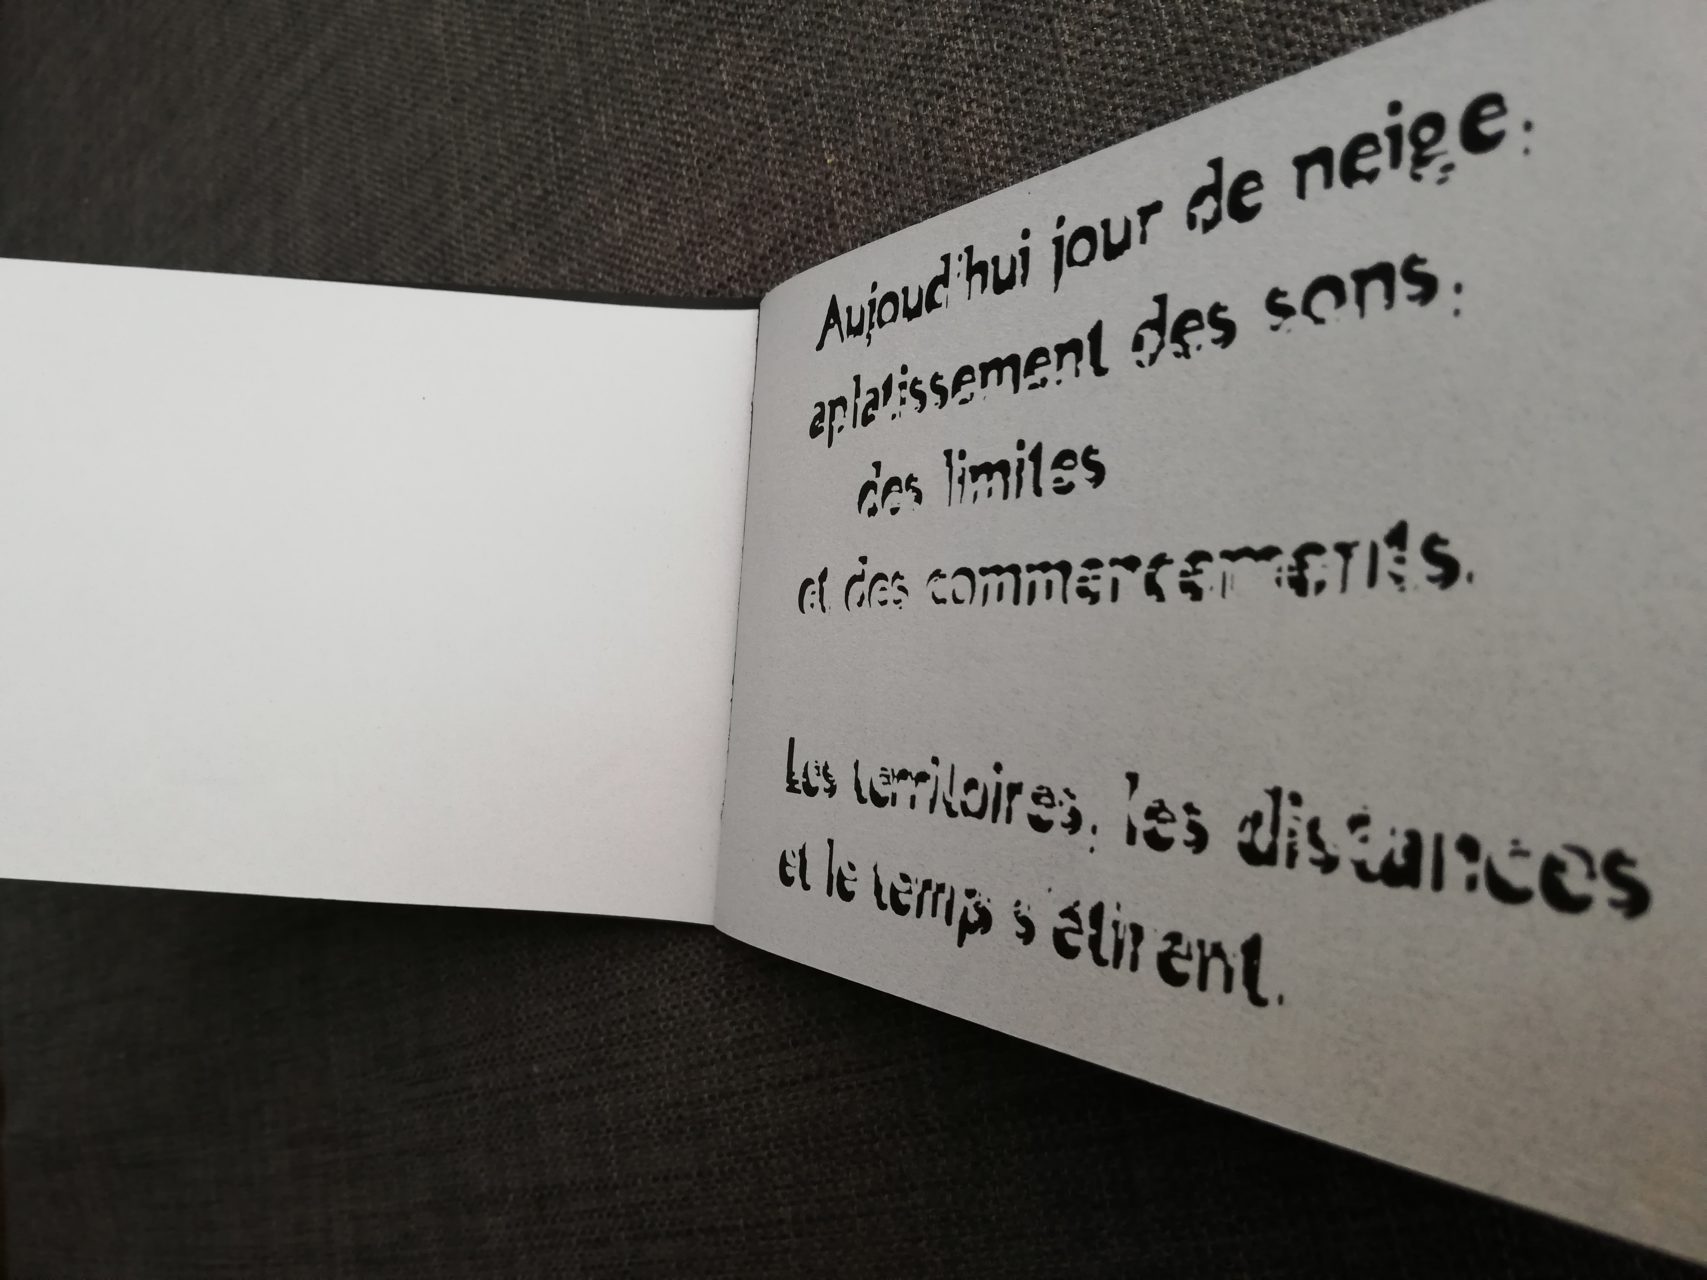 Aujoud'hui jour de neige,
aplatissement des sons,
des limites
et des commencements.
Les territoires, les distances
et le temp s'étirent.